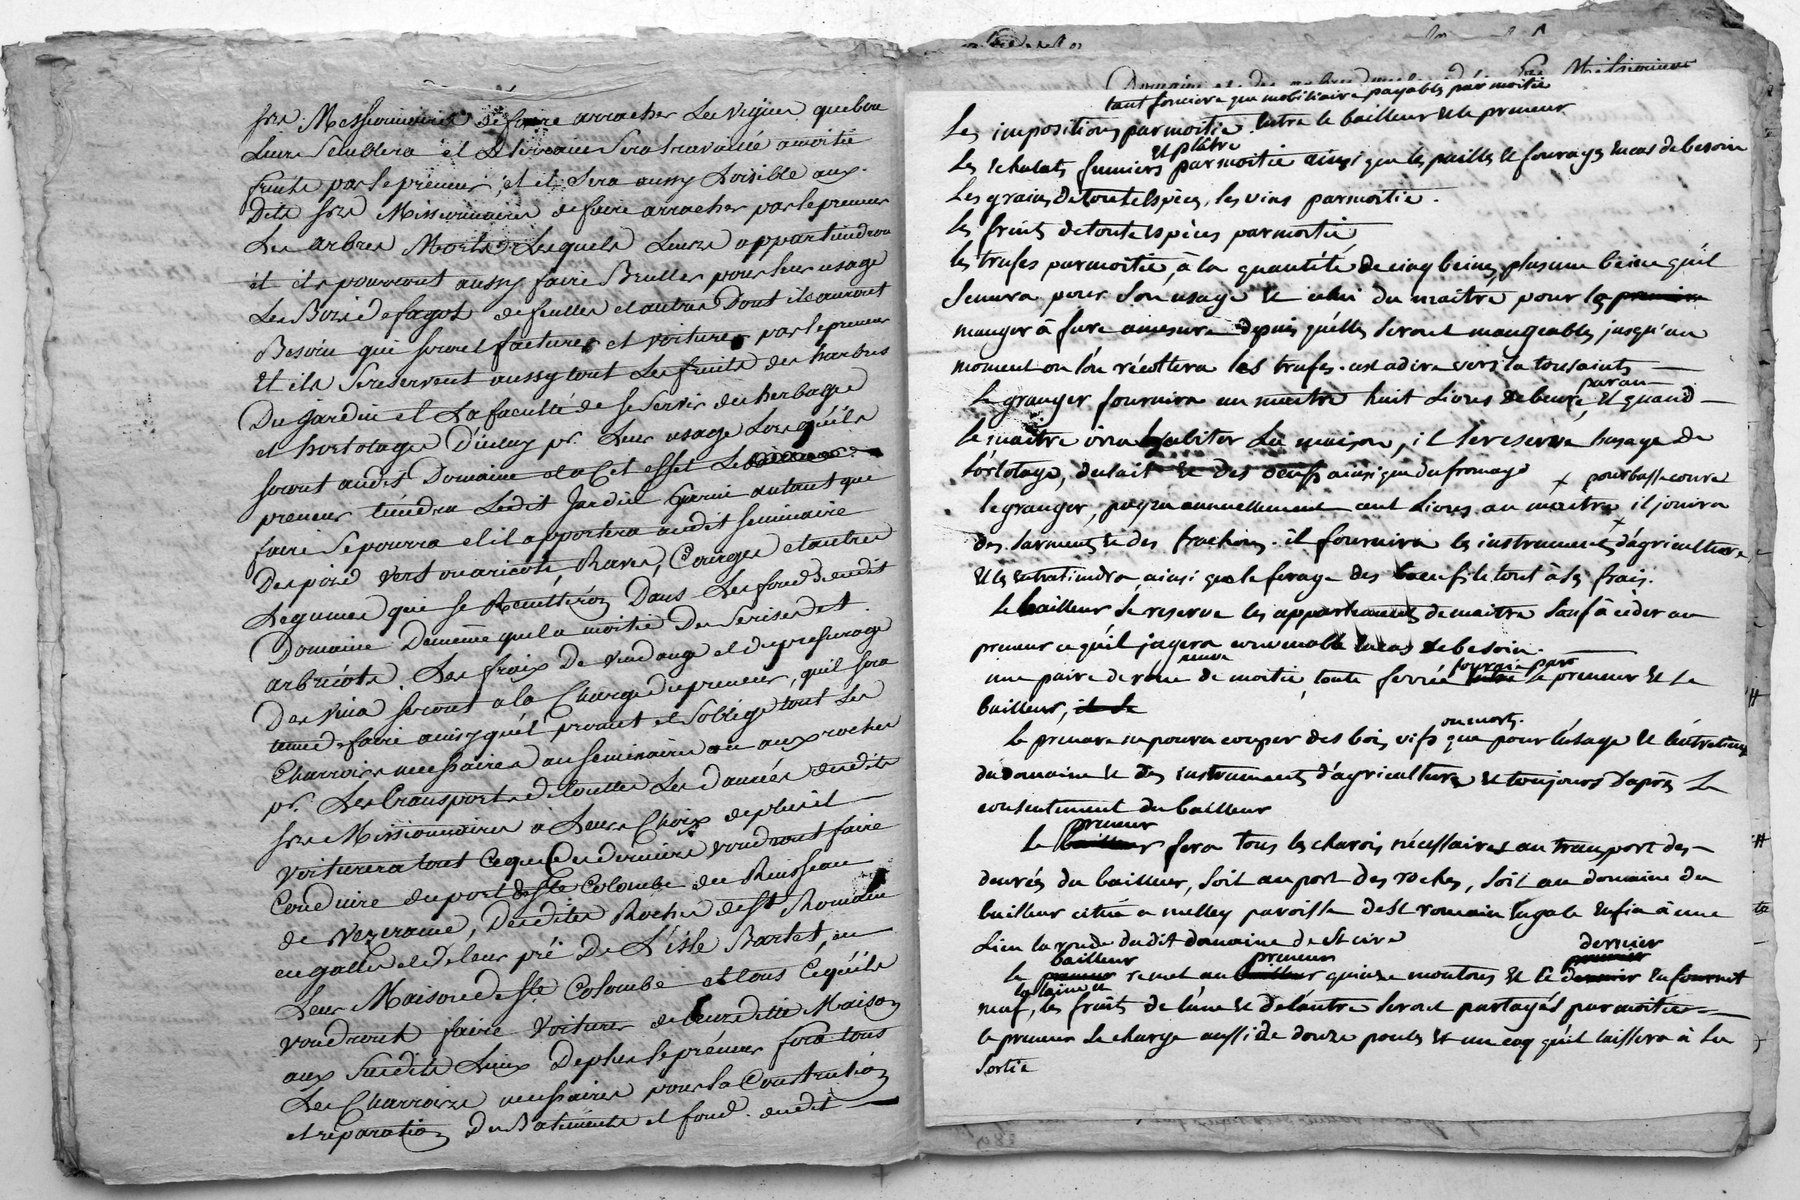 srs. Missionnaires de faire arracher Les vignes que bon
Leurs Semblera et Le terrain Sera travaillé a moitié
fruits par le preneur, et il Sera aussy Loisible aux
Dits srs Missionnaires de faire arracher par le preneur
Les arbres Morts Lesquels Leurs appartiendron
et ils pourront aussy faire Bruller pour leur usage
Les Bois de fagot de feuilles et autres Dont ils auront
Besoin qui seront factures et voitures par le preneur
Et ils se reservent aussy tout Les fruits des harbres
Du Jardin et La faculté de se Servir des herbage
et hortolage D'iceluy pr. Leur usage Lorsqu'ils
seront audit Domaine et a Cet effet Le
preneur tiendra Ledit Jardin Garni autant que
faire Se pourra et il apportera audit seminaire
Des pois verts ou aricots, Raves, Courges et autres
Legumes qui se Recuilleron Dans Les fonds dudit
Domaine De meme que la moitié Des Serises et
arbricots. Les fraix De vendange et de pressurage
Des vins seront a la Charge du preneur, quil sera
tenu de faire ainsy qu'il promet et soblige tout Les
Charrois necessaires au seminaire ou aux roches
pr. Les transports de toutes Les danrées desdits
srs Missionnaires a Leurs Choix de plus il
voiturera tout Ce que Ces derniers voudront faire
Conduire du port de Ste Colombe du Ruisseau
de vezerance, Desdites Roches de St Romain
en galles et de leur pré De L'isle Bartet, en
Leur Maison de Ste Colombe et tous Ce qu'ils
voudront faire voiturer de leurs dite Maison
aux Susdits Lieux De plus le preneur fera tous
Les Charrois necessaires pour la Construction
et reparation Des Batiments et fond dudit
Missionnaires
tant fonciere que mobiliaire payables par moitié
Les impositions par moitié entre le bailleur et le preneur
et plâtre
Les echalats fumiers par moitié ainsi que les pailles et fourages en cas de besoin
Les grains de toute espèces, les vins par moitié.
les fruits de toute espèces par moitié
les trufes par moitié, à la quantité de cinq beines, plus une beine qu'il
semera pour son usage et celui du maitre pour les
manger à fure a mesure depuis qu'elles seront mangeables jusqu'au
moment ou l'on récoltera les trufes. cest a dire vers la tousaints
par an
Le granger fournira au maitre huit Livres de beure, et quand
le maitre ira habiter la maison, il se reserve l'usage de
l'ortolage, du lait et des oeufs ainsi que du fromage
x pour basse courre
le granger, payra annuellement cent Livres au maitre x il jouira
des sarments et des . il fournira les instruments d'agriculture
et les entretiendra ainsi que le ferage des boeufs le tout à ses frais.
Le bailleur se reserve les appartements de maitre sauf à céder au
preneur ce qu'il jugera convenable en cas de besoin.
neuve
fournie par
une paire de roue de moitié, toute ferrée le preneur et le
bailleur, et le
ou morts
Le preneur ne pourra couper des bois vifs que pour l'usage et l'entretient
du domaine et des instruments d'agriculture et toujours d'après le
consentement du bailleur
preneur
Le bailleur fera tous les charois nécessaires au transport des
denrées du bailleur, soit au port des roches, soit au domaine du
bailleur citué a melley paroisse de St romain en gale enfin à une
Lieu la ronde du dit domaine de St cire
bailleur preneur dernier
Le preneur remet au bailleur quinze moutons et le dernier en fournit
la laine et
neuf, les fruits de l'une et de l'autre seront partagés par moitié
le preneur se charge aussi de douze poules et un coq qu'il laissera à sa
Sortie